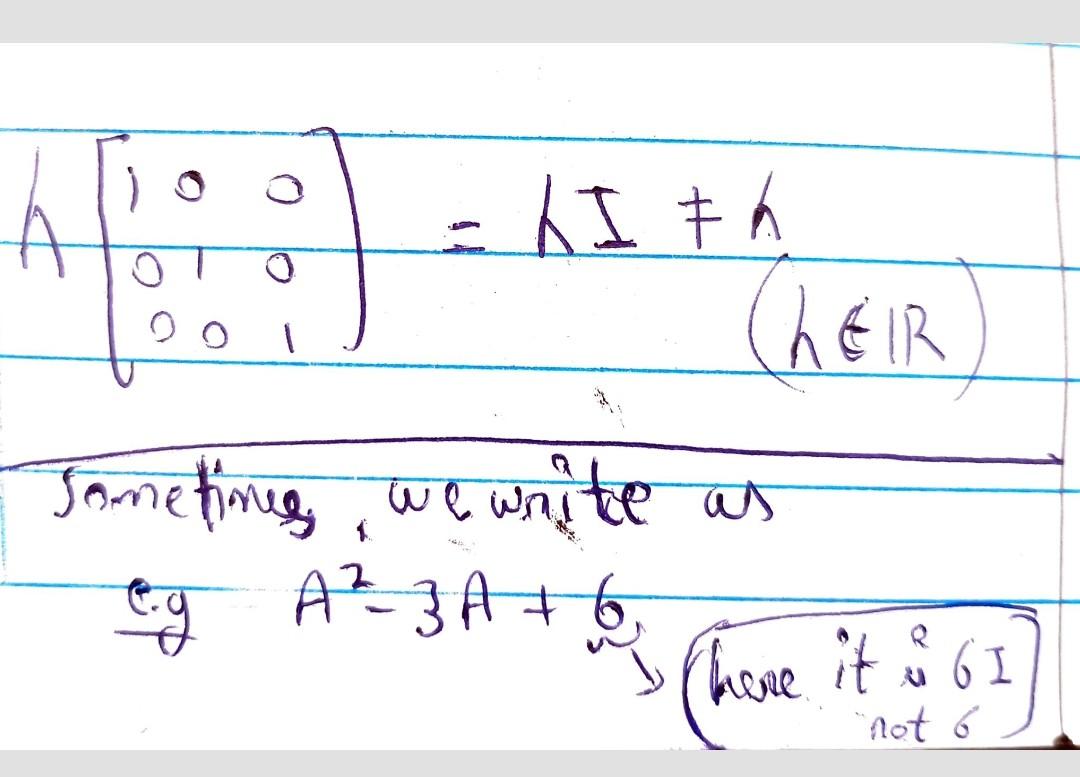 h [1 0 0
0 1 0
0 0 1] = hI ≠ h
(h ∈ IR)
Sometimes, we write as
e.g A² - 3A + 6
(here it is 6I
not 6)